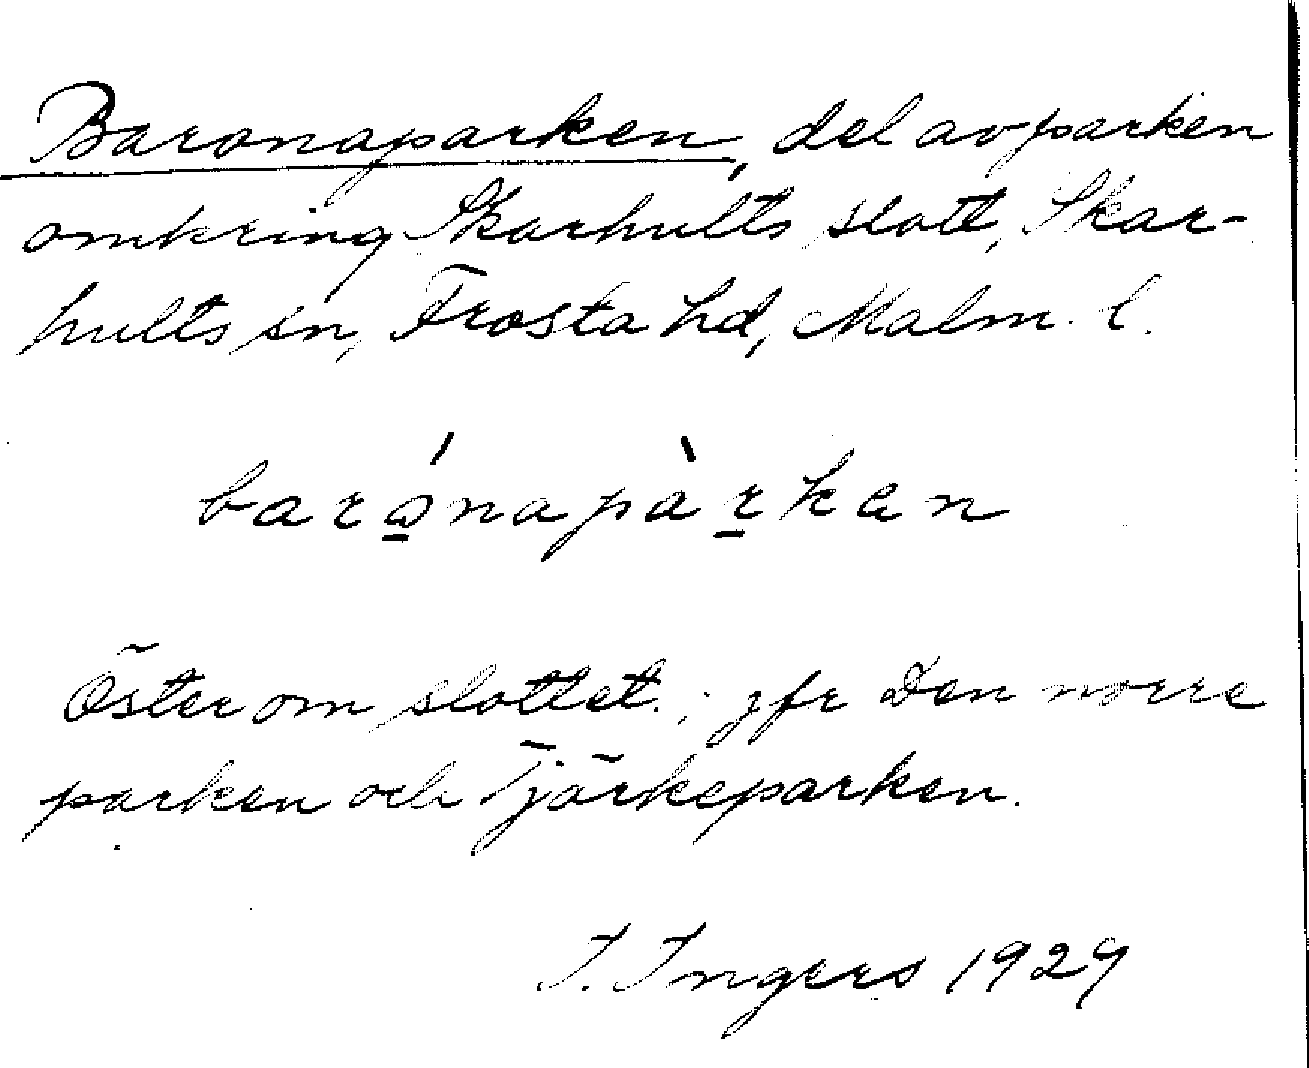 Baronaparken, del av parken
omkring Skarhults slott, Skar-
hults sn, Frosta hd, Malm. l.
barónapàrken
Öster om slottet.; jfr Den norre
parken och Tjörkeparken.
I. Ingers 1929